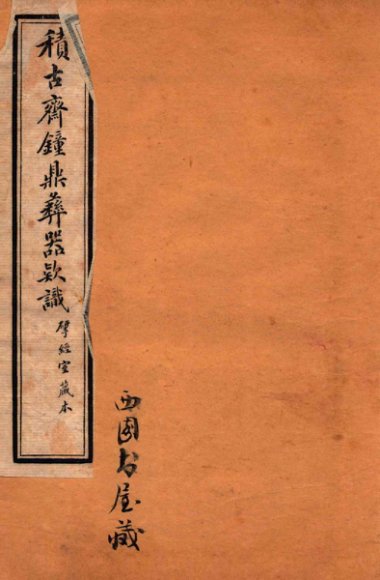 積古齋鐘鼎彝器款識
揅經室藏本
西園書屋藏